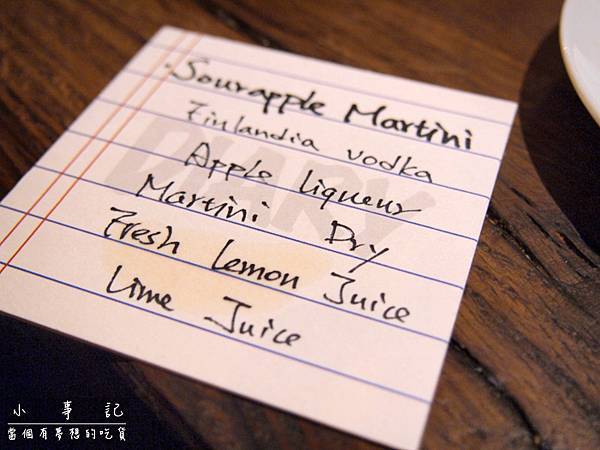 ·Sourapple Martini
Finlandia vodka
Apple liqueur
Martini Dry
Fresh lemon Juice
Lime Juice
DIARY
小事記
當個有夢想的吃貨